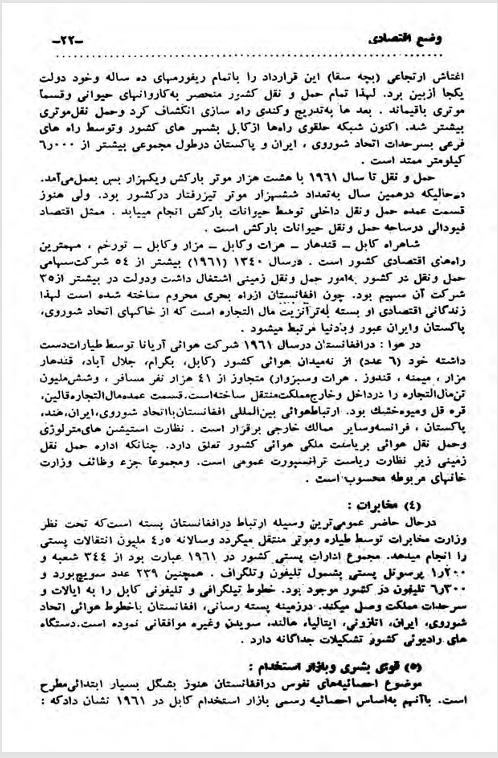 وضع اقتصادی
-۲۲-
اغتشاش ارتجاعی (بچه سقا) این قرارداد را باتمام ریفورمهای ده ساله وخود دولت
یکجا ازبین برد. لهذا تمام حمل و نقل کشور منحصر به‌کاروانهای حیوانی وقسماً
موتری باقیماند . بعد ها به‌تدریج وکندی راه سازی انکشاف کرد وحمل نقل‌موتری
بیشتر شد. اکنون شبکه حلقوی راه‌ها ازکابل بشهر های کشور وتوسط راه های
فرعی بسرحدات اتحاد شوروی ، ایران و پاکستان درطول مجموعی بیشتر از ۶۰۰۰
کیلومتر ممتد است .
حمل و نقل تا سال ۱۹۶۱ با هشت هزار موتر بارکش ویکهزار بس بعمل‌می‌آمد.
درحالیکه درهمین سال به‌تعداد ششهزار موتر تیزرفتار درکشور بود. ولی هنوز
قسمت عمده حمل ونقل داخلی توسط حیوانات بارکش انجام مییابد . ممثل اقتصاد
فیودالی درساحه حمل ونقل حیوانات بارکش است .
شاهراه کابل – قندهار – هرات وکابل – مزار وکابل – تورخم ، مهمترین
راه‌های اقتصادی کشور است . درسال ۱۳۴۰ (۱۹۶۱) بیشتر از ۵۴ شرکت‌سهامی
حمل ونقل در کشور به‌امور حمل ونقل زمینی اشتغال داشت ودولت در بیشتر از۳۵
شرکت آن سهیم بود. چون افغانستان ازراه بحری محروم ساخته شده است لهذا
زندگانی اقتصادی او بسته به‌ترانزیت مال التجاره است که از خاکهای اتحاد شوروی،
پاکستان وایران عبور وبادنیا مرتبط میشود .
در هوا : درافغانستان درسال ۱۹۶۱ شرکت هوائی آریانا توسط طیارات‌دست
داشته خود (۶ عدد) از نه‌میدان هوائی کشور (کابل، بگرام، جلال آباد، قندهار
مزار ، میمنه ، قندوز . هرات وسبزوار) متجاوز از ۴۱ هزار نفر مسافر ، وشش‌ملیون
تن‌مال‌التجاره را درداخل وخارج‌مملکت‌منتقل ساخته‌است.قسمت عمده‌مال‌التجاره‌قالین،
قره قل ومیوه‌خشک بود. ارتباط‌هوائی بین‌المللی افغانستان‌بااتحاد شوروی،ایران،هند،
پاکستان ، فرانسه‌وسایر ممالک خارجی برقرار است . نظارت استیشن های‌مترلوژی
وحمل نقل هوائی بریاست ملکی هوائی کشور تعلق دارد. چنانکه اداره حمل نقل
زمینی زیر نظارت ریاست ترانسپورت عمومی است. ومجموعاً جزء وظائف وزارت
خانهای مربوطه محسوب‌است .
(۴) مخابرات :
درحال حاضر عمومی‌ترین وسیله ارتباط درافغانستان پسته است‌که تحت نظر
وزارت مخابرات توسط طیاره وموتر منتقل میگردد وسالانه ۴٫۵ ملیون انتقالات پستی
را انجام میدهد. مجموع ادارات پستی کشور در ۱۹۶۱ عبارت بود از ۳۴۴ شعبه و
۱٫۲۰۰ پرسونل پستی بشمول تلیفون وتلگراف . همچنین ۲۳۹ عدد سویچ‌بورد و
۶٫۳۰۰ تلیفون در کشور موجود بود. خطوط تیلگرافی و تلیفونی کابل را به ایالات و
سرحدات مملکت وصل میکند. درزمینه پسته رسانی، افغانستان باخطوط هوائی اتحاد
شوروی، ایران، اتازونی، ایتالیا، هالند، سویدن وغیره موافقاتی نموده است.دستگاه
های رادیوئی کشور تشکیلات جداگانه دارد .
(۵) قوای بشری وبازار استخدام :
موضوع احصائیه‌های نفوس درافغانستان هنوز بشکل بسیار ابتدائی‌مطرح
است. باآنهم به‌اساس احصائیه رسمی بازار استخدام کابل در ۱۹۶۱ نشان دادکه :